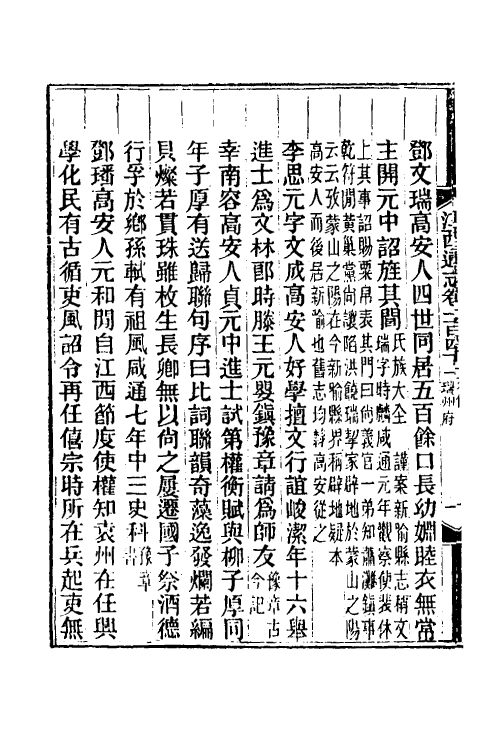 江西通志卷一百四十一 瑞州府 一
鄧文瑞高安人四世同居五百餘口長幼婣睦衣無常
主開元中詔旌其閭氏族大全 謹案新喻縣志稱文瑞字時麟咸通元年觀察使裴休
上其事詔賜粟帛表其門曰尙義官一弟知瀟灘鎮事乾符閒黃巢黨尙讓陷洪饒瑞挈家辟地於蒙山之陽
云云攷蒙山之陽在今新喻縣界稱辟地疑本高安人而後居新喻也舊志均載高安從之
李思元字文成高安人好學擅文行誼峻潔年十六舉
進士爲文林郎時滕王元嬰鎮豫章請爲師友豫章古今記
幸南容高安人貞元中進士試第權衡賦與柳子厚同
年子厚有送歸聯句序曰比詞聯韻奇藻逸發爛若編
貝燦若貫珠雖枚生長卿無以尙之屢遷國子祭酒德
行孚於鄉孫軾有祖風咸通七年中三史科豫章書
鄧璠高安人元和閒自江西節度使權知袁州在任興
學化民有古循吏風詔令再任僖宗時所在兵起吏無